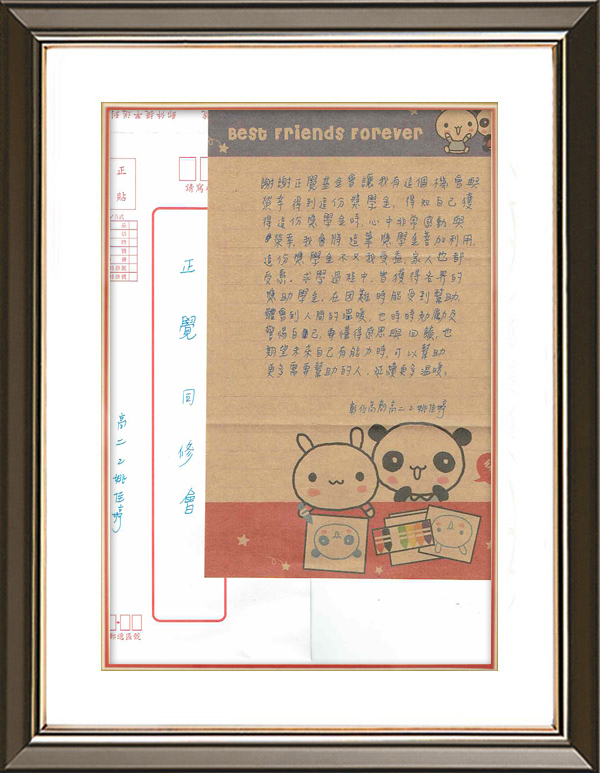 Best Friends Forever
謝謝正覺基金會讓我有這個機會與
榮幸得到這份獎學金,得知自己獲
得這份獎學金時,心中非常感動與
榮幸,我會將這筆獎學金善加利用,
這份獎學金不只我受益,家人也都
受惠。求學過程中,曾獲得各界的
獎助學金,在困難時能受到幫助,
體會到人間的溫暖,也時時勉勵及
警惕自己,要懂得感恩與回饋,也
期望未來自己有能力時,可以幫助
更多需要幫助的人,延續更多溫暖。
高二2姚佳婷
正覺同修會
高二2姚佳婷
正
貼
郵遞區號